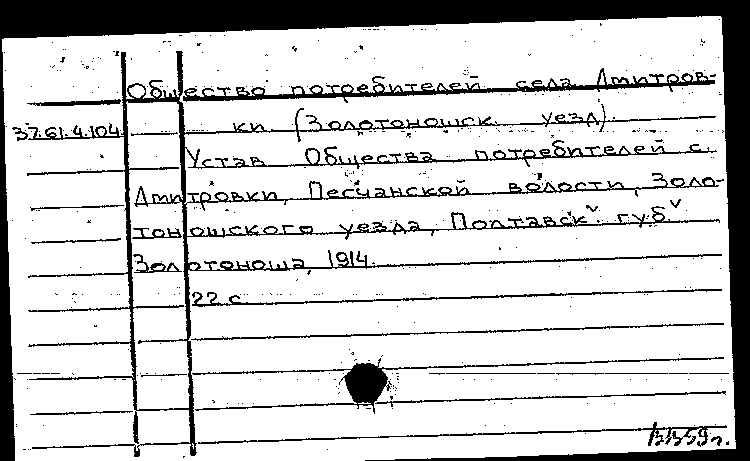 Общество потребителей села Дмитров-
37.61.4.104. ки (Золотоношск. уезд).
Устав Общества потребителей с.
Дмитровки, Песчанской волости, Золо-
тоношского уезда, Полтавск. губ.
Золотоноша, 1914.
22 с.